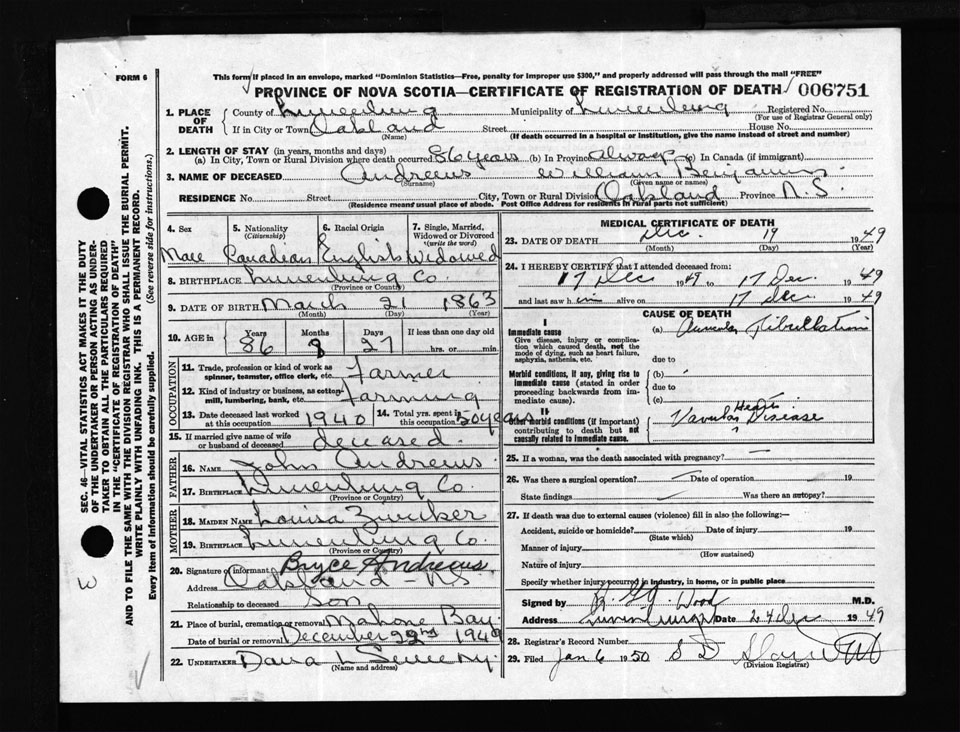 FORM 6
This form if placed in an envelope, marked "Dominion Statistics—Free, penalty for improper use $300," and properly addressed will pass through the mail "FREE"
PROVINCE OF NOVA SCOTIA—CERTIFICATE OF REGISTRATION OF DEATH 006751
1. PLACE OF DEATH County of Lunenburg Municipality of Lunenburg Registered No.
(For use of Registrar General only)
If in City or Town Oakland Street House No.
(Name) (If death occurred in a hospital or institution, give the name instead of street and number)
2. LENGTH OF STAY (in years, months and days)
(a) In City, Town or Rural Division where death occurred 86 years (b) In Province always (c) In Canada (if immigrant)
3. NAME OF DECEASED Andrews William Benjamin
(Surname) (Given name or names)
RESIDENCE No. Street City, Town or Rural Division Oakland Province N.S.
(Residence means usual place of abode. Post Office Address for residents in rural parts not sufficient)
4. Sex 5. Nationality (Citizenship) 6. Racial Origin 7. Single, Married, Widowed or Divorced (write the word)
Male Canadian English Widowed
8. BIRTHPLACE Lunenburg Co.
(Province or Country)
9. DATE OF BIRTH March 21 1863
(Month) (Day) (Year)
10. AGE in Years Months Days If less than one day old
86 8 27 hrs. or min.
OCCUPATION
11. Trade, profession or kind of work as spinner, teamster, office clerk, etc. Farmer
12. Kind of industry or business, as cotton mill, lumbering, bank, etc. Farming
13. Date deceased last worked at this occupation 1940 14. Total yrs. spent in this occupation 50 years
15. If married give name of wife or husband of deceased deceased.
FATHER
16. NAME John Andrews
17. BIRTHPLACE Lunenburg Co.
(Province or Country)
MOTHER
18. MAIDEN NAME Louisa Zwicker
19. BIRTHPLACE Lunenburg Co.
(Province or Country)
20. Signature of informant Bryce Andrews.
Address Oakland - NS
Relationship to deceased Son
21. Place of burial, cremation or removal Mahone Bay
Date of burial or removal December 22nd 1949
22. UNDERTAKER
(Name and address)
MEDICAL CERTIFICATE OF DEATH
23. DATE OF DEATH Dec. 19 1949
(Month) (Day) (Year)
24. I HEREBY CERTIFY that I attended deceased from:
17 Dec 1949 to 17 Dec. 1949
and last saw him alive on 17 Dec 1949
CAUSE OF DEATH
I
Immediate cause (a) Auricular Fibrillation
Give disease, injury or complication which caused death, not the mode of dying, such as heart failure, asphyxia, asthenia, etc. due to
Morbid conditions, if any, giving rise to immediate cause (stated in order proceeding backwards from immediate cause). (b)
due to
(c)
II
Other morbid conditions (if important) contributing to death but not causally related to immediate cause. Heart Disease
25. If a woman, was the death associated with pregnancy?
26. Was there a surgical operation? Date of operation 19
State findings Was there an autopsy?
27. If death was due to external causes (violence) fill in also the following:—
Accident, suicide or homicide? Date of injury 19
(State which)
Manner of injury
(How sustained)
Nature of injury
Specify whether injury occurred in industry, in home, or in public place
Signed by Wood M.D.
Address Lunenburg Date 24 Dec 1949
28. Registrar's Record Number
29. Filed Jan 6 1950
(Division Registrar)
SEC. 46—VITAL STATISTICS ACT MAKES IT THE DUTY
OF THE UNDERTAKER OR PERSON ACTING AS UNDER-
TAKER TO OBTAIN ALL THE PARTICULARS REQUIRED
IN THE "CERTIFICATE OF REGISTRATION OF DEATH"
AND TO FILE THE SAME WITH THE DIVISION REGISTRAR WHO SHALL ISSUE THE BURIAL PERMIT.
WRITE PLAINLY WITH UNFADING INK. THIS IS A PERMANENT RECORD.
Every item of information should be carefully supplied. (See reverse side for instructions.)
W